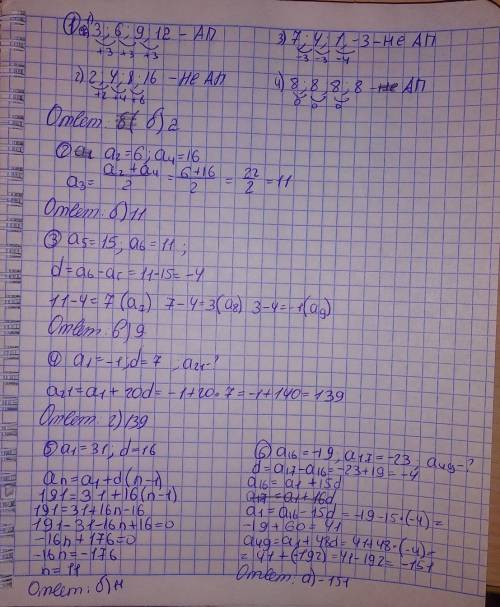 ① 1) 3, 6, 9, 12 - АП
+3 +3 +3
2) 2, 4, 8, 16 - Не АП
+2 +4 +8
3) 7, 4, 1, -3 - Не АП
-3 -3 -4
4) 8, 8, 8, 8 - АП
0 0 0
Ответ: б) 2
② a₂=6; a₄=16
a₃= (a₂+a₄)/2 = (6+16)/2 = 22/2 = 11
Ответ: б) 11
③ a₅=15, a₆=11;
d=a₆-a₅=11-15=-4
11-4=7 (a₇) 7-4=3 (a₈) 3-4=-1 (a₉)
Ответ: в) 9
④ a₁=-1; d=7; a₂₁-?
a₂₁=a₁+20d=-1+20·7=-1+140=139
Ответ: г) 139
⑤ a₁=31; d=16
aₙ=a₁+d(n-1)
191=31+16(n-1)
191=31+16n-16
191-31-16n+16=0
-16n+176=0
-16n=-176
n=11
Ответ: б) 11
⑥ a₁₆=-19, a₁₇=-23, a₄₉-?
d=a₁₇-a₁₆=-23+19=-4
a₁₆=a₁+15d
a₁₇=a₁+16d
a₁=a₁₆-15d=-19-15·(-4)=
-19+60=41
a₄₉=a₁+48d=41+48·(-4)=
=41+(-192)=41-192=-151
Ответ: а) -151